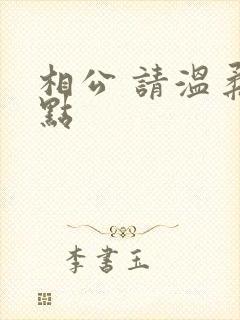 相公 請溫柔
點
李書玉